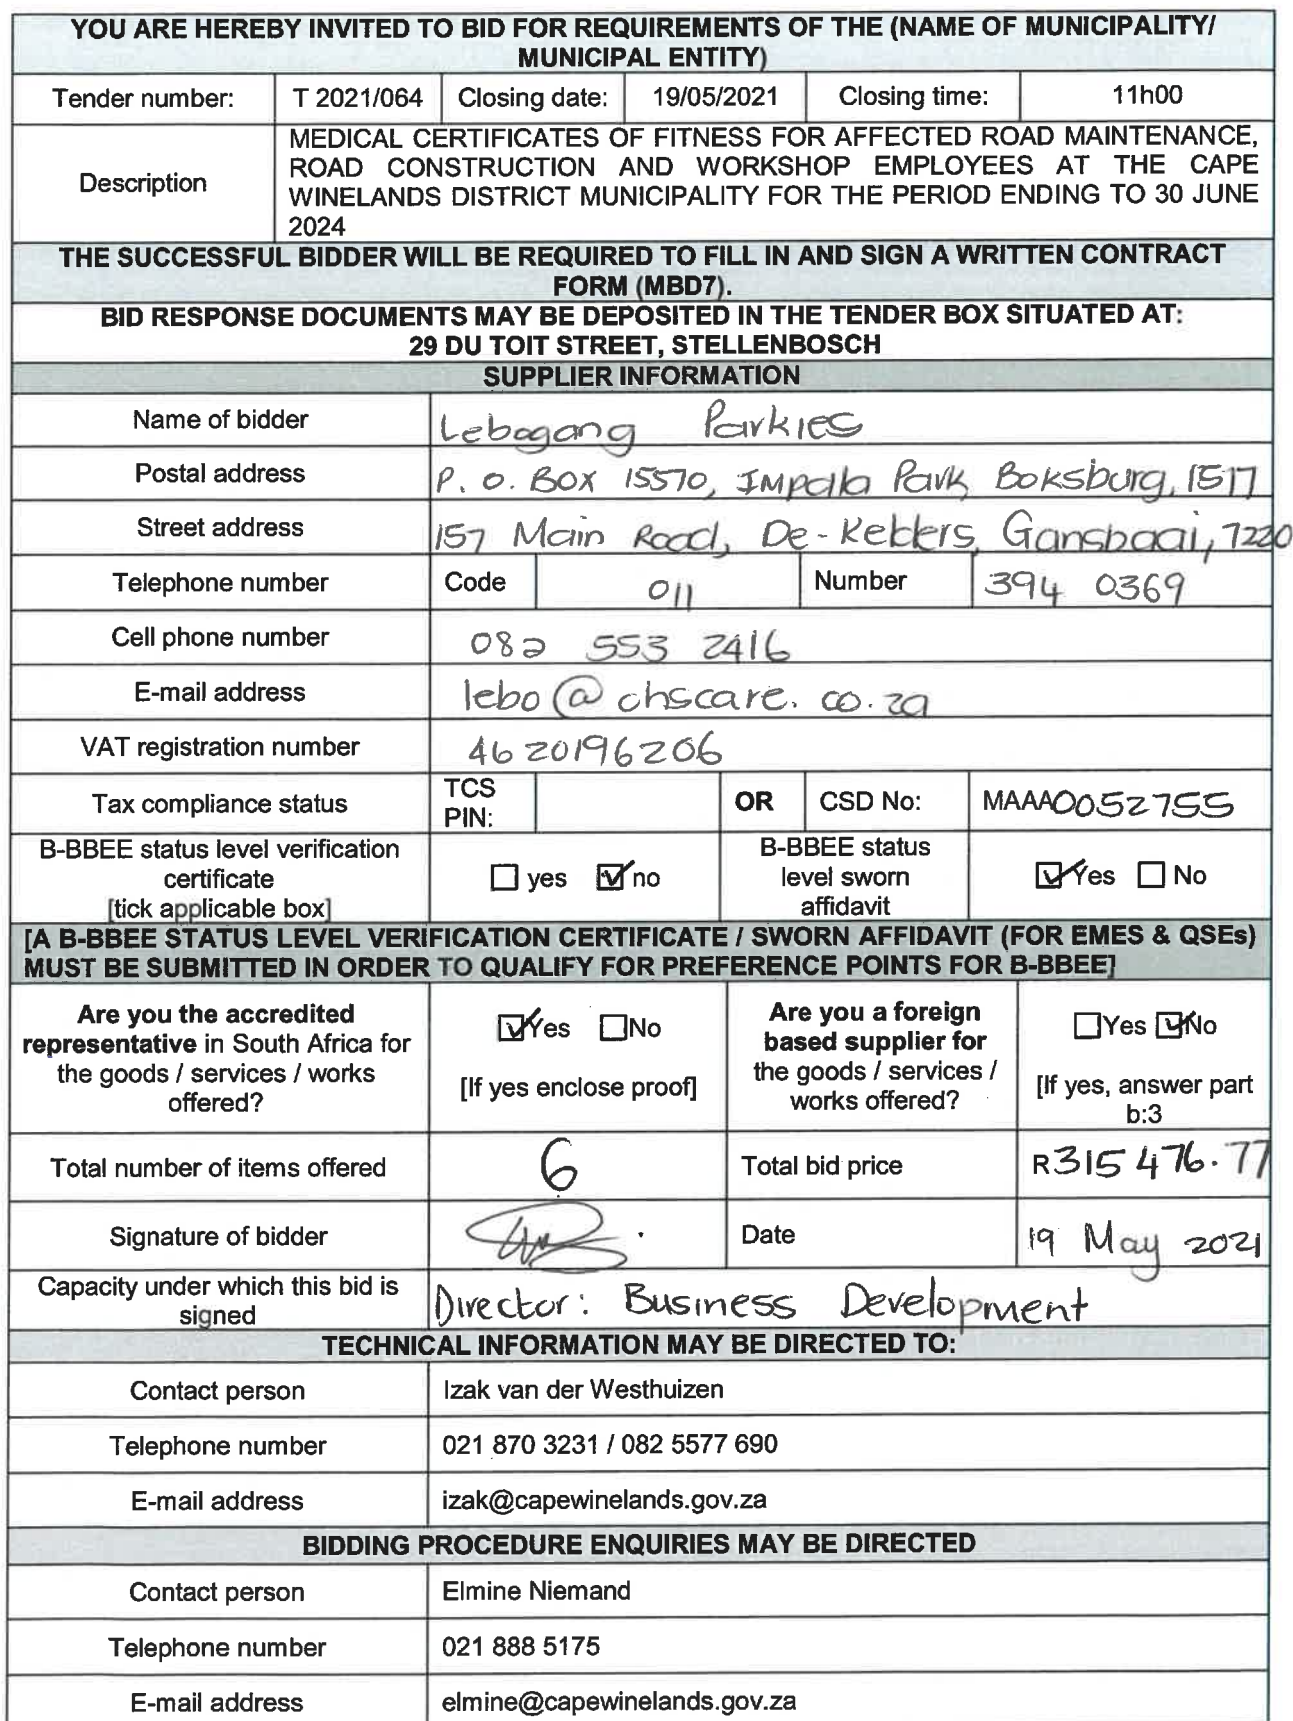 YOU ARE HEREBY INVITED TO BID FOR REQUIREMENTS OF THE (NAME OF MUNICIPALITY/
MUNICIPAL ENTITY)
Tender number: T 2021/064 Closing date: 19/05/2021 Closing time: 11h00
Description
MEDICAL CERTIFICATES OF FITNESS FOR AFFECTED ROAD MAINTENANCE,
ROAD CONSTRUCTION AND WORKSHOP EMPLOYEES AT THE CAPE
WINELANDS DISTRICT MUNICIPALITY FOR THE PERIOD ENDING TO 30 JUNE
2024
THE SUCCESSFUL BIDDER WILL BE REQUIRED TO FILL IN AND SIGN A WRITTEN CONTRACT
FORM (MBD7).
BID RESPONSE DOCUMENTS MAY BE DEPOSITED IN THE TENDER BOX SITUATED AT:
29 DU TOIT STREET, STELLENBOSCH
SUPPLIER INFORMATION
Name of bidder Lebogang Parkies
Postal address P. O. BOX 15570, Impala Park, Boksburg, 1517
Street address 157 Main Road, De-Kelders, Gansbaai, 7220
Telephone number Code 011 Number 394 0369
Cell phone number 082 553 2416
E-mail address lebo@ohscare.co.za
VAT registration number 4620196206
Tax compliance status
TCS
PIN:
OR CSD No: MAAA0052755
B-BBEE status level verification
certificate
[tick applicable box]
yes no
B-BBEE status
level sworn
affidavit
Yes No
[A B-BBEE STATUS LEVEL VERIFICATION CERTIFICATE / SWORN AFFIDAVIT (FOR EMES & QSEs)
MUST BE SUBMITTED IN ORDER TO QUALIFY FOR PREFERENCE POINTS FOR B-BBEE]
Are you the accredited
representative in South Africa for
the goods / services / works
offered?
Yes No
[If yes enclose proof]
Are you a foreign
based supplier for
the goods / services /
works offered?
Yes No
[If yes, answer part
b:3
Total number of items offered 6 Total bid price R315 476.77
Signature of bidder Date 19 May 2021
Capacity under which this bid is
signed
Director: Business Development
TECHNICAL INFORMATION MAY BE DIRECTED TO:
Contact person Izak van der Westhuizen
Telephone number 021 870 3231 / 082 5577 690
E-mail address izak@capewinelands.gov.za
BIDDING PROCEDURE ENQUIRIES MAY BE DIRECTED
Contact person Elmine Niemand
Telephone number 021 888 5175
E-mail address elmine@capewinelands.gov.za